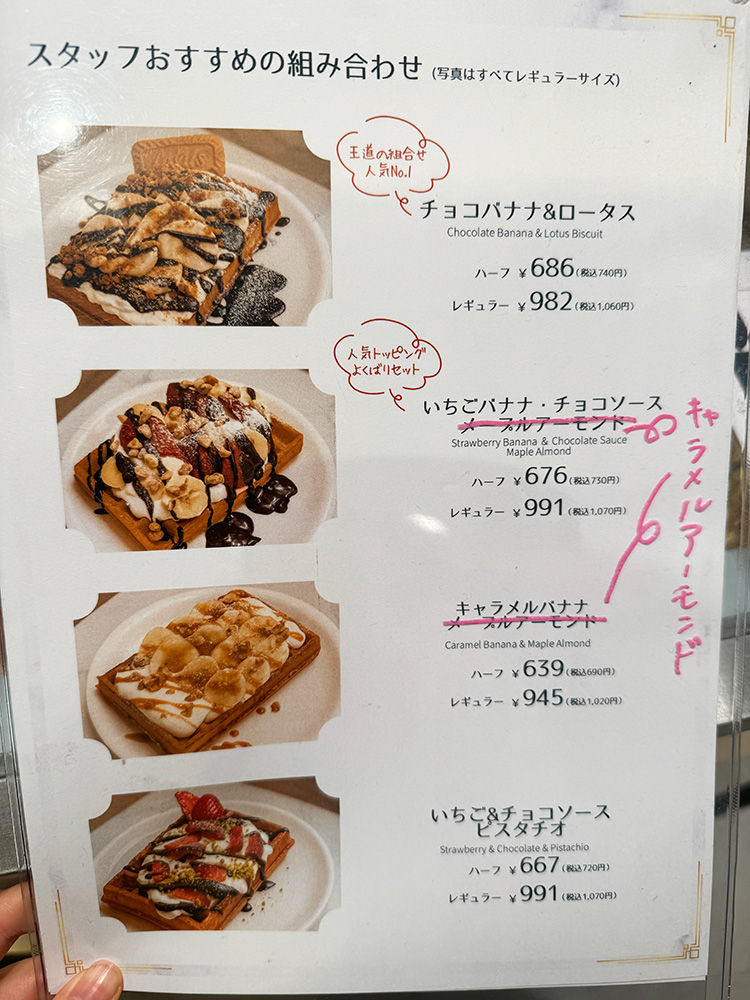 スタッフおすすめの組み合わせ (写真はすべてレギュラーサイズ)
王道の組合せ
人気No.1
チョコバナナ&ロータス
Chocolate Banana & Lotus Biscuit
ハーフ ¥686(税込740円)
レギュラー ¥982(税込1,060円)
人気トッピング
よくばりセット
いちごバナナ・チョコソース
メープルアーモンド
Strawberry Banana & Chocolate Sauce
Maple Almond
ハーフ ¥676(税込730円)
レギュラー ¥991(税込1,070円)
キャラメルアーモンド
キャラメルバナナ
メープルアーモンド
Caramel Banana & Maple Almond
ハーフ ¥639(税込690円)
レギュラー ¥945(税込1,020円)
いちご&チョコソース
ピスタチオ
Strawberry & Chocolate & Pistachio
ハーフ ¥667(税込720円)
レギュラー ¥991(税込1,070円)